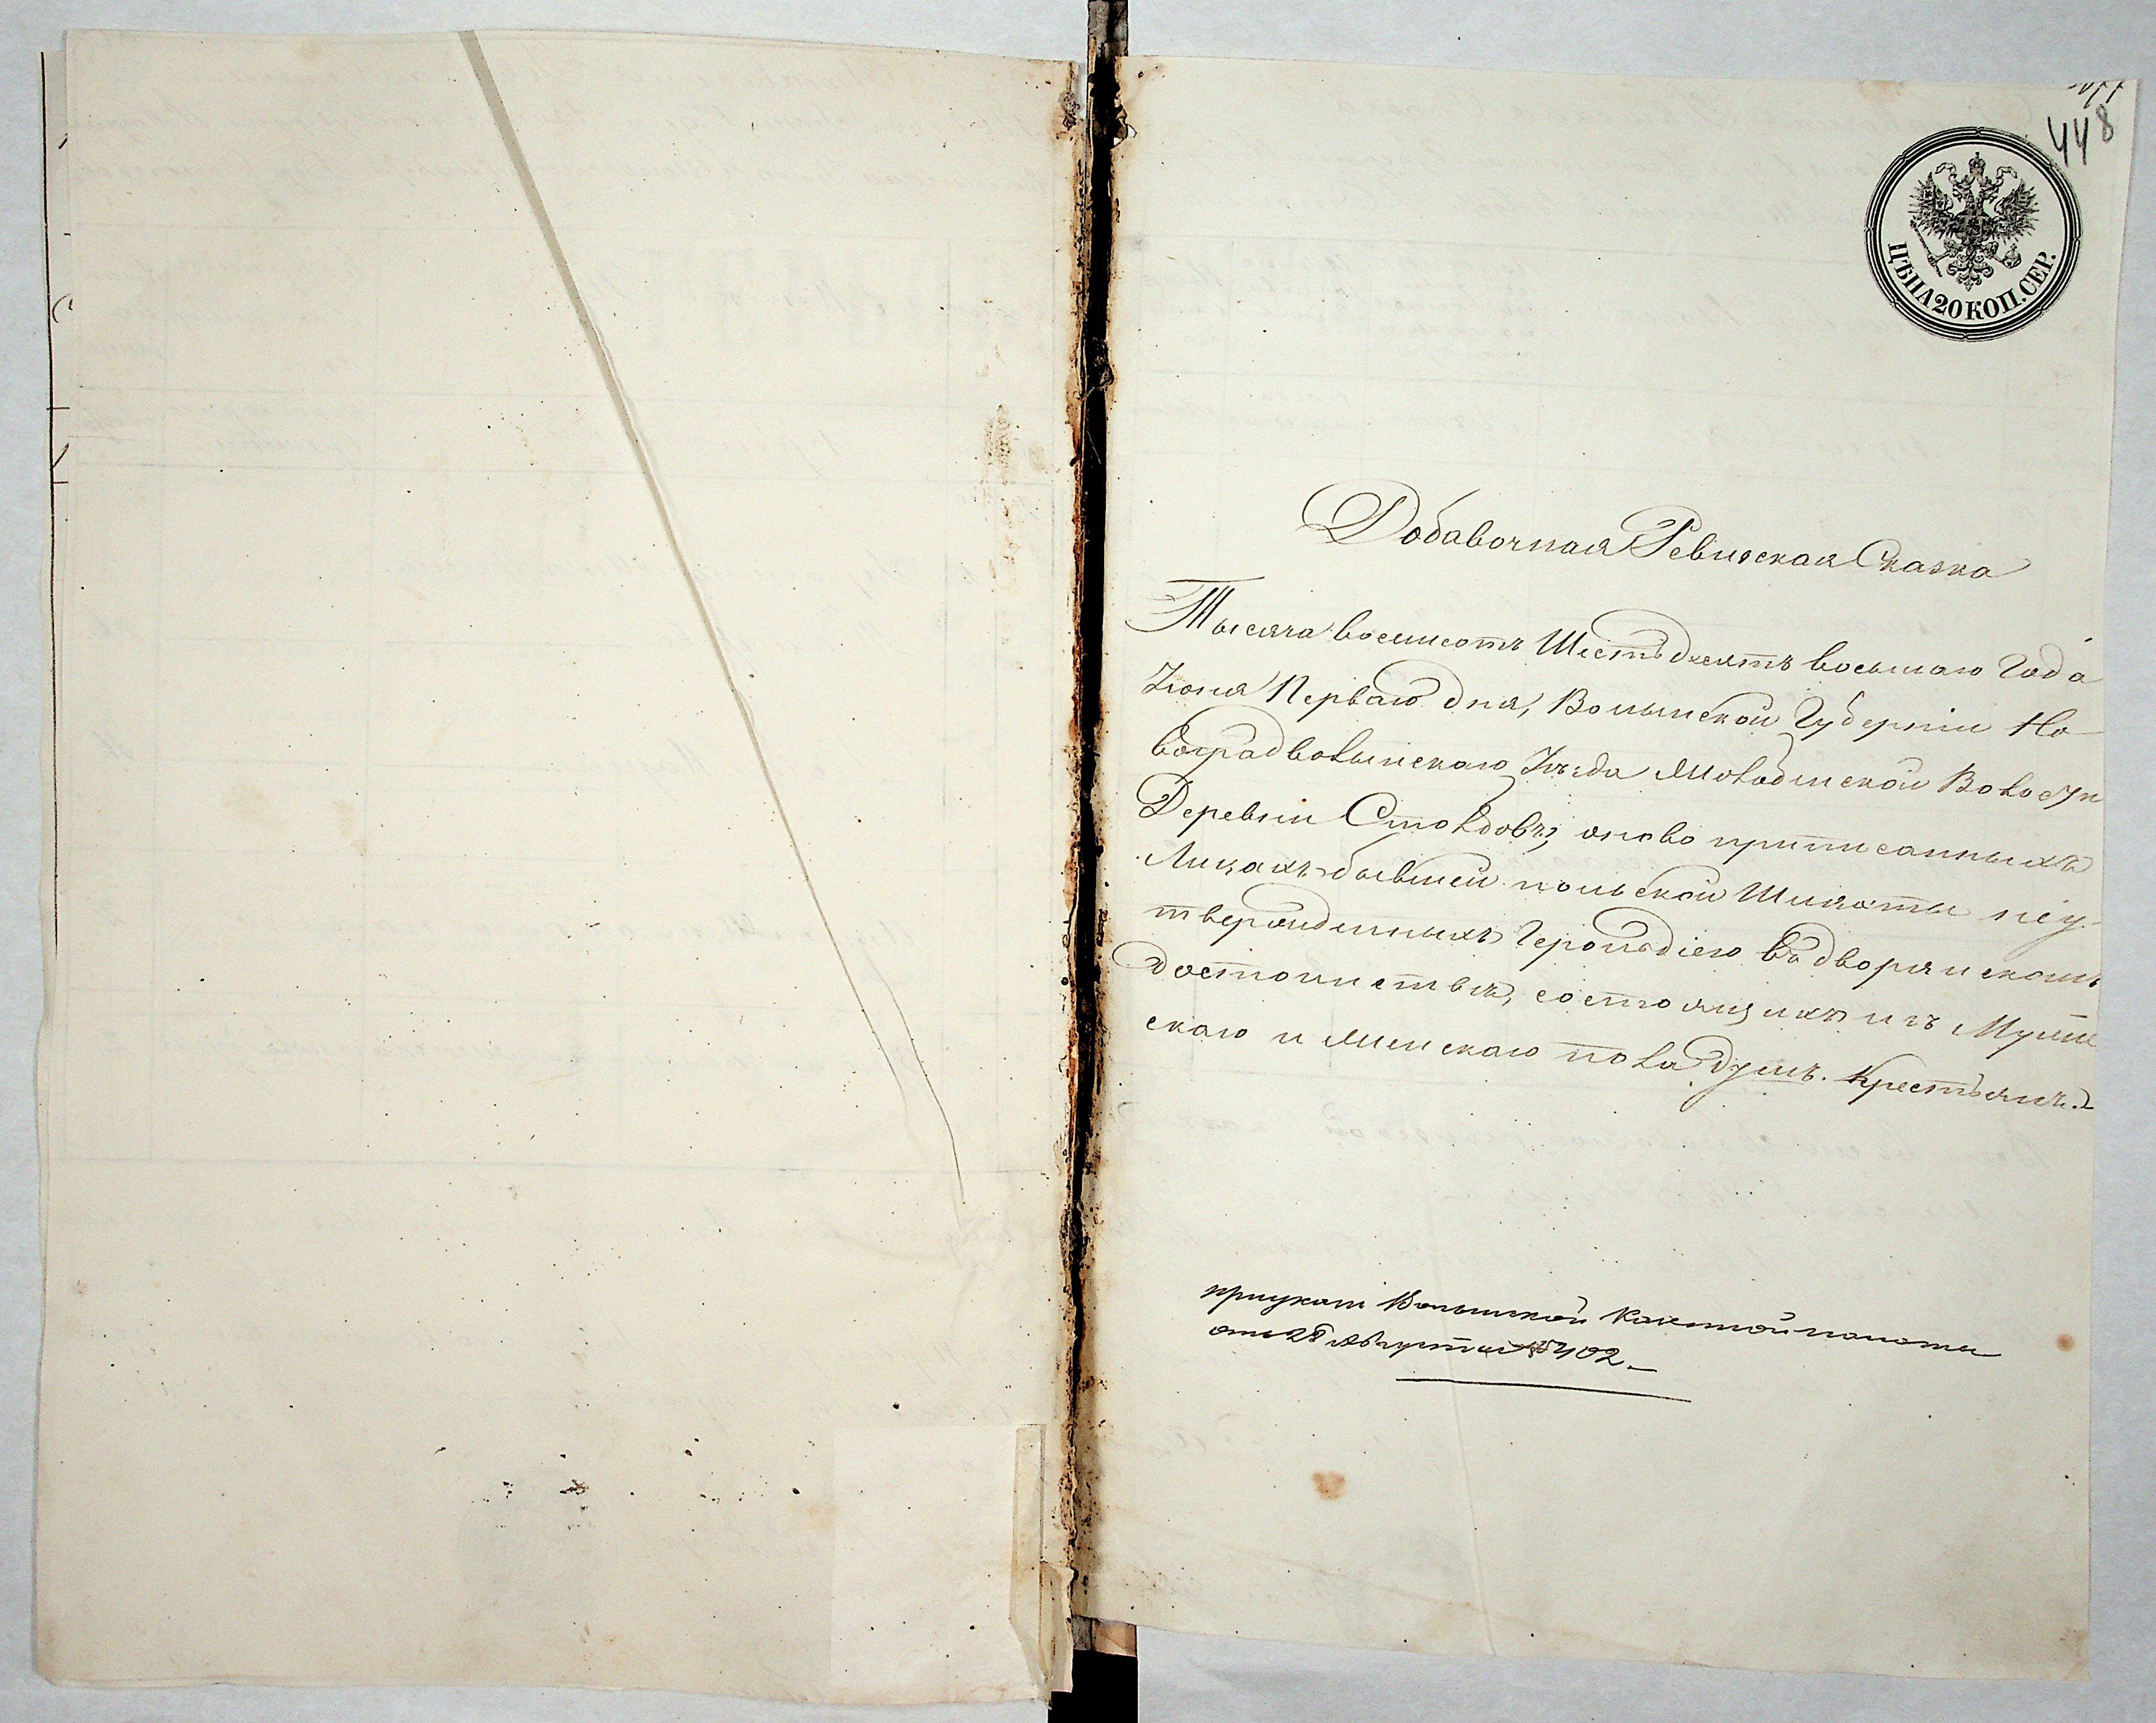 448
ЦѢНА 20 КОП. СЕР.
Добавочная Ревизская Сказка
Тысяча восемсотъ Шестьдесятъ восьмаго Года
Іюня Перваго дня, Волынской Губерніи Но-
воградволынскаго Уѣзда Молодинской Волости
Деревни Столбовъ, оново приписанныхъ
Лицахъ бывшей польской Шляхты неу-
твержденныхъ Герольдіею въ дворянскомъ
достоинствѣ, состоящихъ изъ Мужe
скаго и Женскаго пола душъ. Крестьянъ.
приуказѣ Волынской Казенной палаты
отъ 28 Августа № 7402